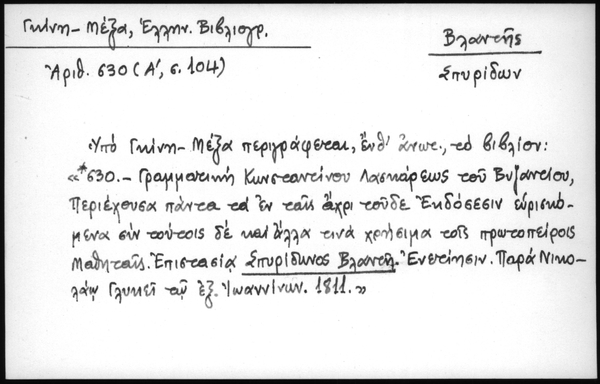 Γκίνη - Μέξα, Ἑλλην. Βιβλιογρ.
Βλαντῆς
Ἀριθ. 630 (Α', σ. 104)
Σπυρίδων
Ὑπὸ Γκίνη - Μέξα περιγράφεται, ἔνθ' ἀνωτ., τὸ βιβλίον:
«*630. — Γραμματικὴ Κωνσταντίνου Λασκάρεως τοῦ Βυζαντίου,
Περιέχουσα πάντα τὰ ἐν ταῖς ἄχρι τοῦδε Ἐκδόσεσιν εὑρισκό-
μενα σὺν τούτοις δὲ καὶ ἄλλα τινὰ χρήσιμα τοῖς πρωτοπείροις
Μαθηταῖς. Ἐπιστασίᾳ Σπυρίδωνος Βλαντῆ. Ἐνετίησιν. Παρὰ Νικο-
λάῳ Γλυκεῖ τῷ ἐξ Ἰωαννίνων. 1811.»